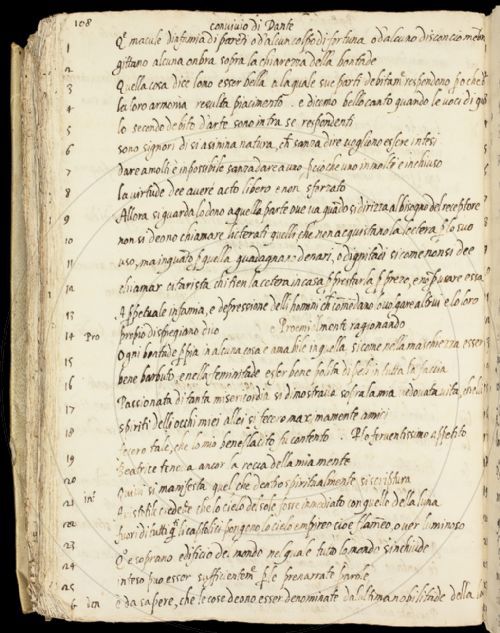 108
convivio di Dante
1 Q^e macule d'infamia di parẽti o d'alcun colpo di fortuna o d'alcuno disconcio membro
gittano alcuna onbra sopra la chiarezza della bontade
2 Quella cosa dice l'ono esser bella a la quale sue parti debitam^e respondeno p̱o che d^l
3 la loro armonia resulta piacimento . e dicemo bello canto quando le voci di q̃llo
4 lo secondo debito d'arte sono intra se respondenti
5 sono signori di si asinina natura, ch̃ sanza dire vogliono essere intesi
6 dare a molti è inpossibile sanza dare a uno, p̱cio che uno in molti è inchiuso
7 la virtude dee avere acto libero e non sforzato
8 Allora si guarda lo dono a quella parte ove va quãdo si dirizza al bisogno del receptore
9 non si deono chiamare licterati quelli che non acquistano la lectera p̱ lo suo
10 uso, ma inquãto p̱ quella guadagnano denari, o dignitadi si come non si dee
11 chiamar citarista chi tien la cetera in casa p̱ prestarla p̱ prezo, e nõ p̱ usare essa
12 A p̱petuale infamia, e depressione delli homini ch̃ comẽdano lo volgare altrui e lo loro
13 proprio dispregiano duo e Proemialmente ragionando
14 Pro Ogni bontade p̱p̱ia in alcuna cosa è amabile in quella si come nella maschiezza essere
15 bene barbuto e nella feminitade esser bene pulita di peli in tutta la faccia
16 Passionata di tanta misericordia si dimostrava sopra la mia vedovata vita, che li
17 spiriti delli occhi miei a lei si fecero max, mamente amici
18 fecero tale, che lo mio beneplacito fu contento . Lo ferventissimo appetito
19 Beatrice tenea ancor la rocca della mia mente
20 Quasi si manifesta quel che dentro spiritualmente si scriptura
21 Aristotile credette che lo cielo del sole fosse inmediato con quello della luna
22 fuori di tutti q̃ li cattolici pongono lo cielo empireo cioè flameo, over luminoso
23 Q^e soprano edificio del mondo nel quale tutto lo mondo s'inchiude
24 inteso puo esser sufficientem^e p̱ le prenarrate parole
25 è da sapere, che le cose deono esser denominate da l'ultima nobilitade della